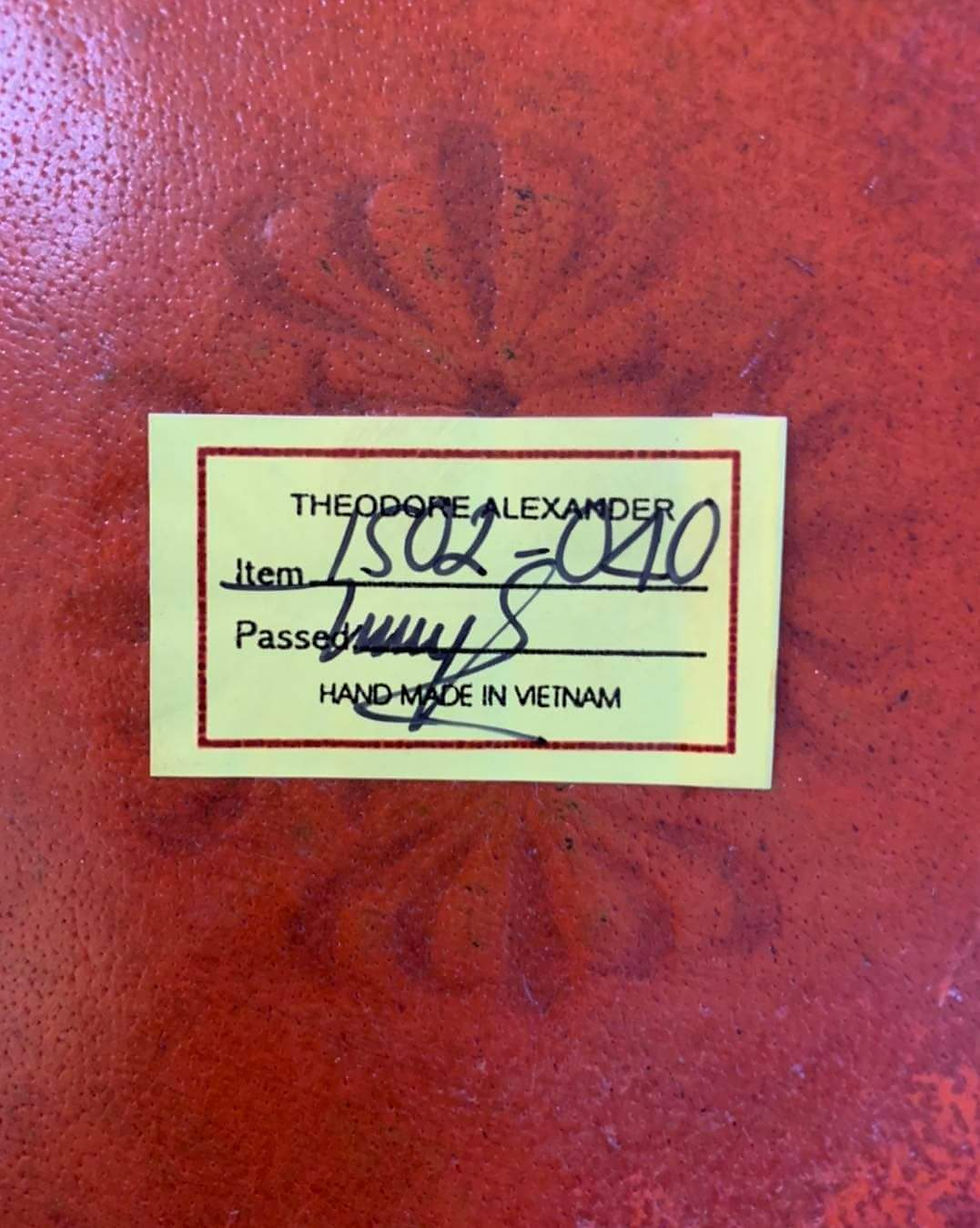 THEODORE ALEXANDER
Item 1502-040
Passed
HAND MADE IN VIETNAM